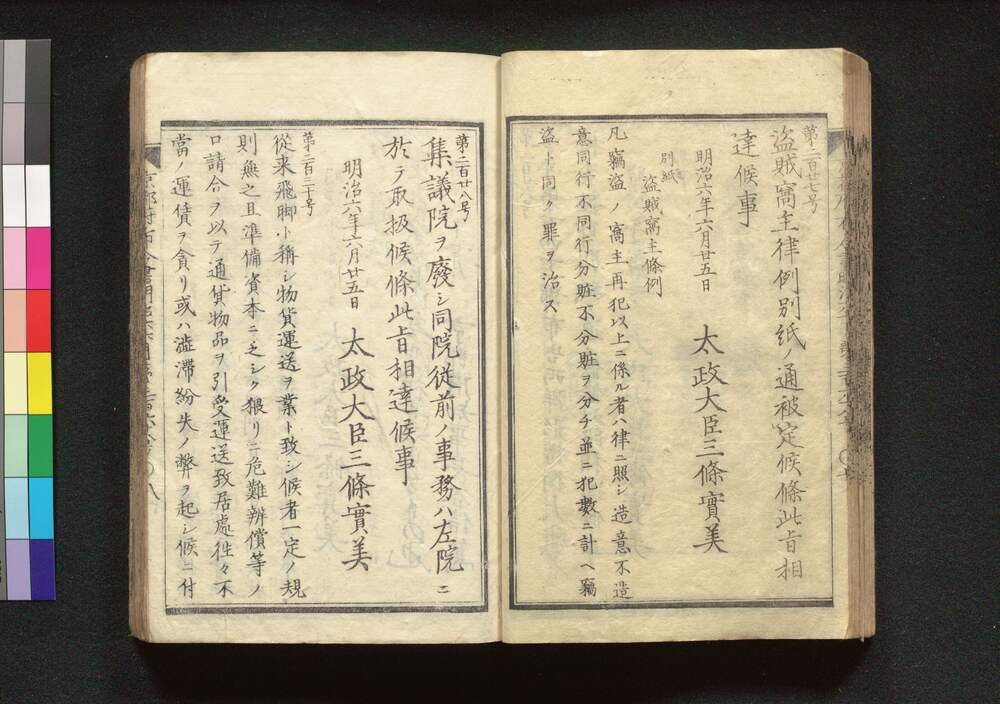 第二百廿七号
盗賊窩主律例別紙ノ通被定候條此旨相
達候事
明治六年六月廿五日　太政大臣三條實美
別紙
盗賊窩主條例
凡竊盗ノ窩主再犯以上ニ係ル者ハ律ニ照シ造意不造
意同行不同行分賍不分賍ヲ分チ並ニ犯數ニ計ヘ竊
盗ト同ク罪ヲ治ス
第二百廿八号
集議院ヲ廢シ同院従前ノ事務ハ左院ニ
於テ取扱候條此旨相達候事
明治六年六月廿五日　太政大臣三條實美
第二百三十号
從来飛脚ト稱シ物貨運送ヲ業ト致シ候者一定ノ規
則無之且準備資本ニ乏シク猥リニ危難辨償等ノ
口請合ヲ以テ通貨物品ヲ引受運送致居處往々不
當ノ運賃ヲ貪リ或ハ澁滯紛失ノ弊ヲ起シ候ニ付